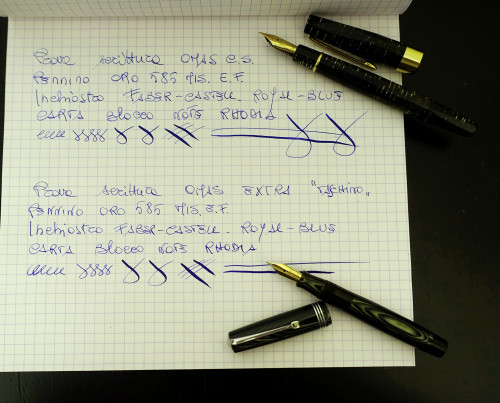 Prova scrittura OMAS C.S.
PENNINO ORO 585 MIS. E.F.
Inchiostro FABER-CASTELL. ROYAL-BLUE
CARTA BLOCCO NOTE RHODIA
Prova scrittura OMAS EXTRA "TASCHINO"
PENNINO ORO 585 MIS. E.F.
Inchiostro FABER-CASTELL. ROYAL-BLUE
CARTA BLOCCO NOTE RHODIA